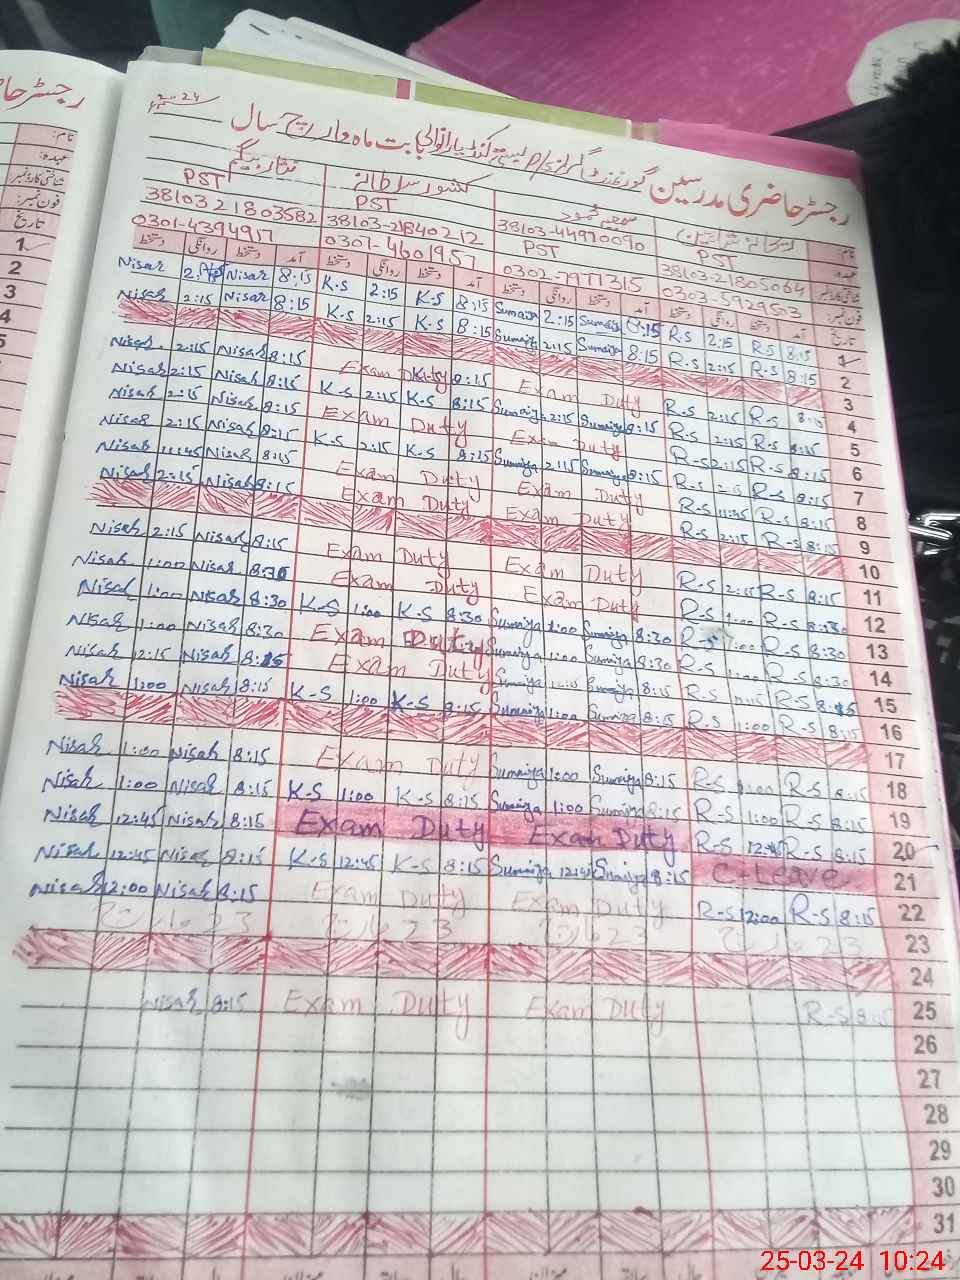 2024
رجسٹر حاضری مدرسین گورنمنٹ گرلز پرائمری بابت ماہ مارچ سال
نام:
نثار بیگم
عہدہ:
PST PST PST PST
شناختی کارڈ نمبر:
38103-21805064 38103-44970090 38103-21840212 3810321803582
فون نمبر:
0303-5929503 0302-7971315 0301-4601957 0301-4394917
تاریخ آمد دستخط روانگی دستخط آمد دستخط روانگی دستخط آمد دستخط روانگی دستخط آمد دستخط روانگی دستخط
Nisar Nisar 8:15 K-S 2:15 K-S 8:15 Sumaiya 2:15 Sumaiya 8:15 R-S 2:15 R-S 8:15 1
Nisar 2:15 Nisar 8:15 K-S 2:15 K-S 8:15 Sumaiya 2:15 Sumaiya 8:15 R-S 2:15 R-S 8:15 2
3
Nisar 2:15 Nisar 8:15 Exam Duty Exam Duty R-S 2:15 R-S 8:15 4
Nisar 2:15 Nisar 8:15 K-S 2:15 K-S 8:15 Sumaiya 2:15 Sumaiya 8:15 R-S 2:15 R-S 8:15 5
Nisar 2:15 Nisar 8:15 Exam Duty Exam Duty R-S 2:15 R-S 8:15 6
Nisar 2:15 Nisar 8:15 K-S 2:15 K-S 8:15 Sumaiya 2:15 Sumaiya 8:15 R-S 2:15 R-S 8:15 7
Nisar 11:45 Nisar 8:15 Exam Duty Exam Duty R-S 11:45 R-S 8:15 8
Nisar 2:15 Nisar 8:15 Exam Duty Exam Duty R-S 2:15 R-S 8:15 9
10
Nisar 2:15 Nisar 8:15 Exam Duty Exam Duty R-S 2:15 R-S 8:15 11
Nisar 1:00 Nisar 8:30 Exam Duty Exam Duty R-S 1:00 R-S 8:30 12
Nisar 1:00 Nisar 8:30 K-S 1:00 K-S 8:30 Sumaiya 1:00 Sumaiya 8:30 R-S 1:00 R-S 8:30 13
Nisar 1:00 Nisar 8:30 Exam Duty Sumaiya 1:00 Sumaiya 8:30 R-S 1:00 R-S 8:30 14
Nisar 12:15 Nisar 8:15 Exam Duty Sumaiya 12:15 Sumaiya 8:15 R-S R-S 8:15 15
Nisar 1:00 Nisar 8:15 K-S 1:00 K-S 8:15 Sumaiya 1:00 Sumaiya 8:15 R-S 1:00 R-S 8:15 16
17
Nisar 1:00 Nisar 8:15 Exam Duty Sumaiya 1:00 Sumaiya 8:15 R-S 1:00 R-S 8:15 18
Nisar 1:00 Nisar 8:15 K-S 1:00 K-S 8:15 Sumaiya 1:00 Sumaiya 8:15 R-S 1:00 R-S 8:15 19
Nisar 12:45 Nisar 8:15 Exam Duty Exam Duty R-S 12:45 R-S 8:15 20
Nisar 12:45 Nisar 8:15 K-S 12:45 K-S 8:15 Sumaiya 12:45 Sumaiya 8:15 C-Leave 21
Nisar 12:00 Nisar 8:15 Exam Duty Exam Duty R-S 12:00 R-S 8:15 22
23 مارچ 23 مارچ 23 مارچ 23 مارچ 23
24
Nisar 8:15 Exam Duty Exam Duty R-S 8:15 25
26
27
28
29
30
31
25-03-24 10:24